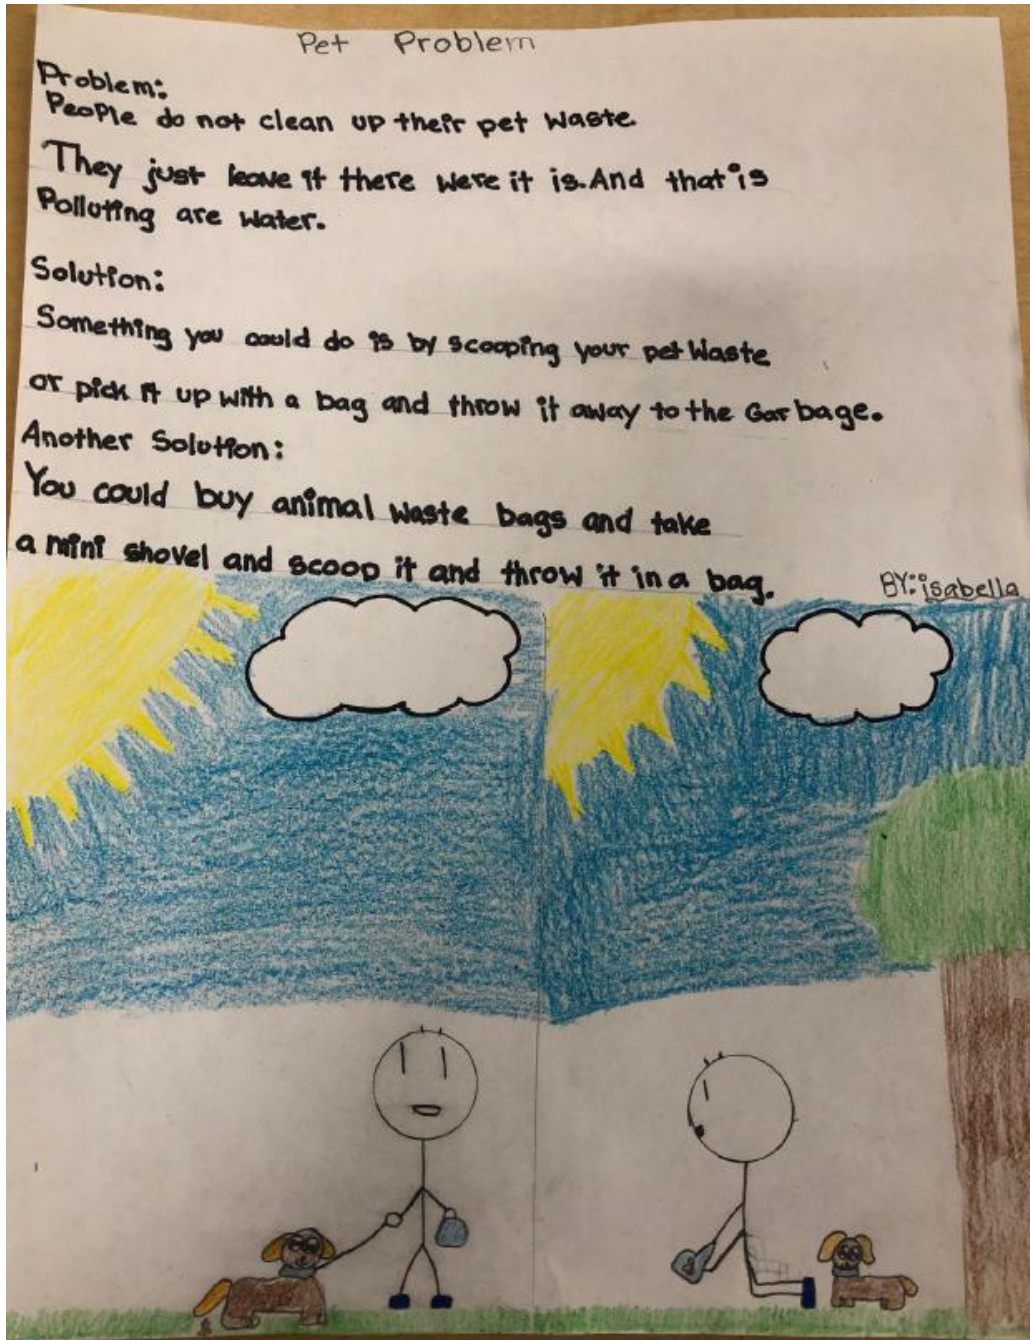 Pet Problem
Problem:
People do not clean up their pet waste
They just leave it there were it is. And that is
Polluting are water.
Solution:
Something you could do is by scooping your pet Waste
or pick it up with a bag and throw it away to the Garbage.
Another Solution:
You could buy animal waste bags and take
a mini shovel and scoop it and throw it in a bag.
BY: isabella